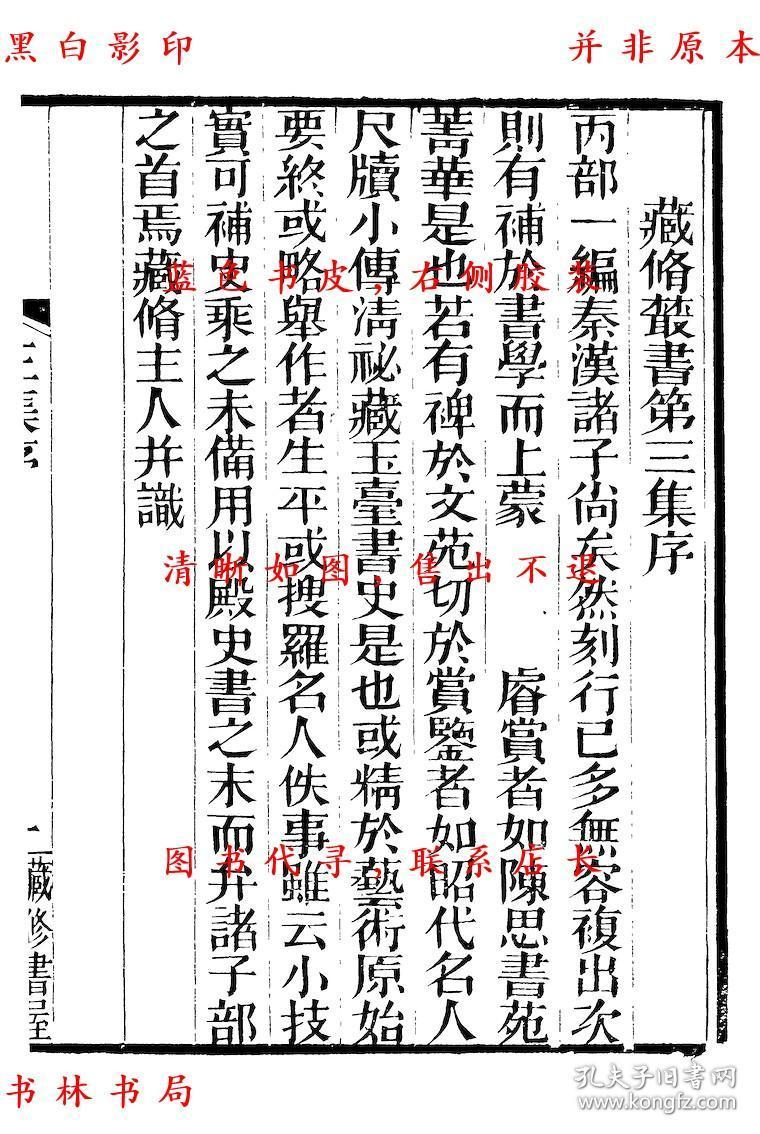 黑白影印
并非原本
藏脩叢書第三集序
丙部一編秦漢諸子尚矣然刻行已多無容複出次
則有補於書學而上蒙 睿賞者如陳思書苑
菁華是也若有裨於文苑切於賞鑒者如昭代名人
尺牘小傳淸祕藏玉臺書史是也或精於藝術原始
要終或略舉作者生平或搜羅名人佚事雖云小技
實可補史乘之未備用以殿史書之末而弁諸子部
之首焉藏脩主人幷識
三集序
一
藏修書屋
蓝色书皮,右侧胶装
清晰如图,售出不退
图书代寻,联系店长
书林书局
孔夫子旧书网
www.kongfz.com